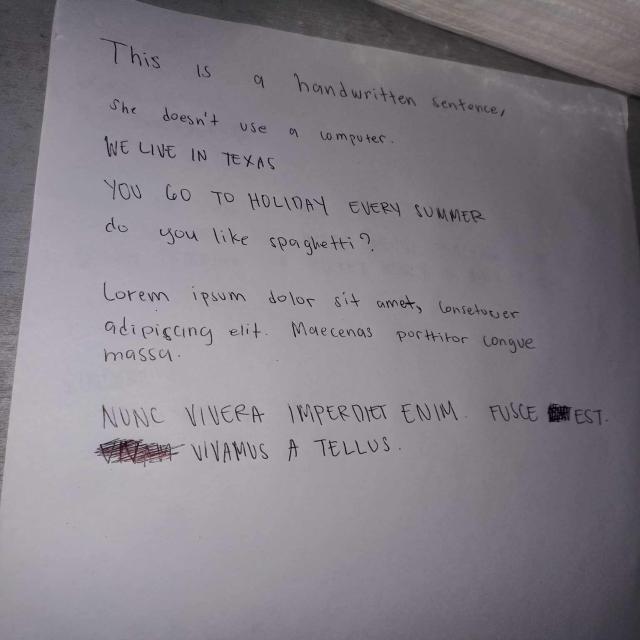 This is a handwritten sentence,
she doesn't use a computer.
WE LIVE IN TEXAS
YOU GO TO HOLIDAY EVERY SUMMER
do you like spaghetti?
Lorem ipsum dolor sit amet, consetuver
adipiscing elit. Maecenas porttitor congue
massa.
NUNC VIVERA IMPERDIET ENIM. FUSCE EST.
VIVAMUS A TELLUS.